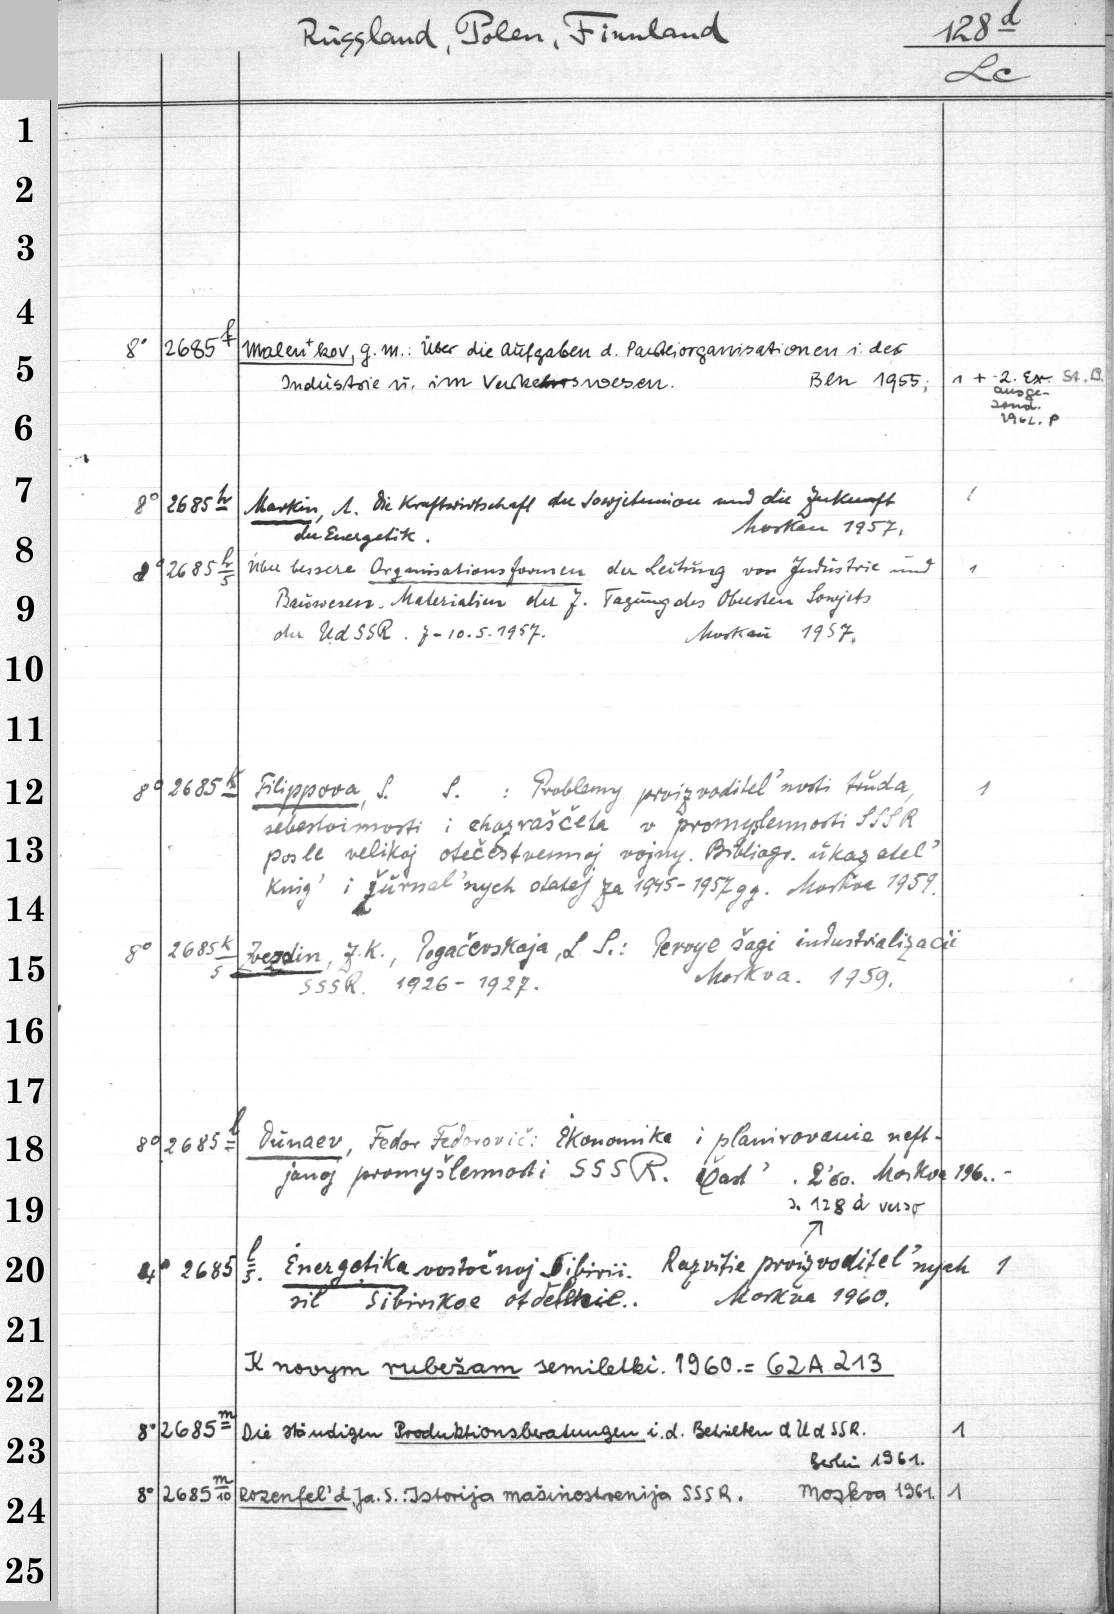 Russland, Polen, Finnland 128 d
Lc
1
2
3
4
8° 2685 f Malen+kov, G. M.: Über die Aufgaben d. Parteiorganisationen i. der
5
Industrie u. im Verkehrswesen. Bln 1955; 1 + 2. Ex. St. B.
ausge-
sond.
1961. P
6
7
8° 2685 h Markin, A. Die Kraftwirtschaft der Sowjetunion und die Zukunft 1
der Energetik. Moskau 1957.
8
8° 2685 h/5 Über bessere Organisationsformen der Leitung von Industrie und 1
9
Bauwesen. Materialien der 7. Tagung des Obersten Sowjets
der UdSSR. 7-10.5.1957. Moskau 1957.
10
11
12
8° 2685 k Filippova, S. S. : Problemy proizvoditel'nosti truda, 1
sebestoimosti i chozrasčeta v promyšlennosti SSSR
13
posle velikoj otečestvennoj vojny. Bibliogr. ukazatel'
knig' i žurnal'nych statej za 1945-1957 gg. Moskva 1959.
14
8° 2685 k/5 Zvezdin, Z. K., Pogačevskaja, L. S.: Pervye šagi industrializacii
15
SSSR. 1926-1927. Moskva. 1959.
16
17
18
8° 2685 l Dunaev, Fedor Fedorovič: Ėkonomika i planirovanie neft-
janoj promyšlennosti SSSR. Čast' . 2'60. Moskva 196..-
19
s. 128 d verso
20
4° 2685 l/5. Ėnergetika vostočnoj Sibirii. Razvitie proizvoditel'nych 1
sil Sibirskoe otdelenie.. Moskva 1960.
21
K novym rubežam semiletki. 1960. = 62 A 213
22
8° 2685 m Die ständigen Produktionsberatungen i. d. Betrieben d UdSSR. 1
23
Berlin 1961.
8° 2685 m/10 Rozenfel'd, Ja. S.: Istorija mašinostroenija SSSR. Moskva 1961. 1
24
25